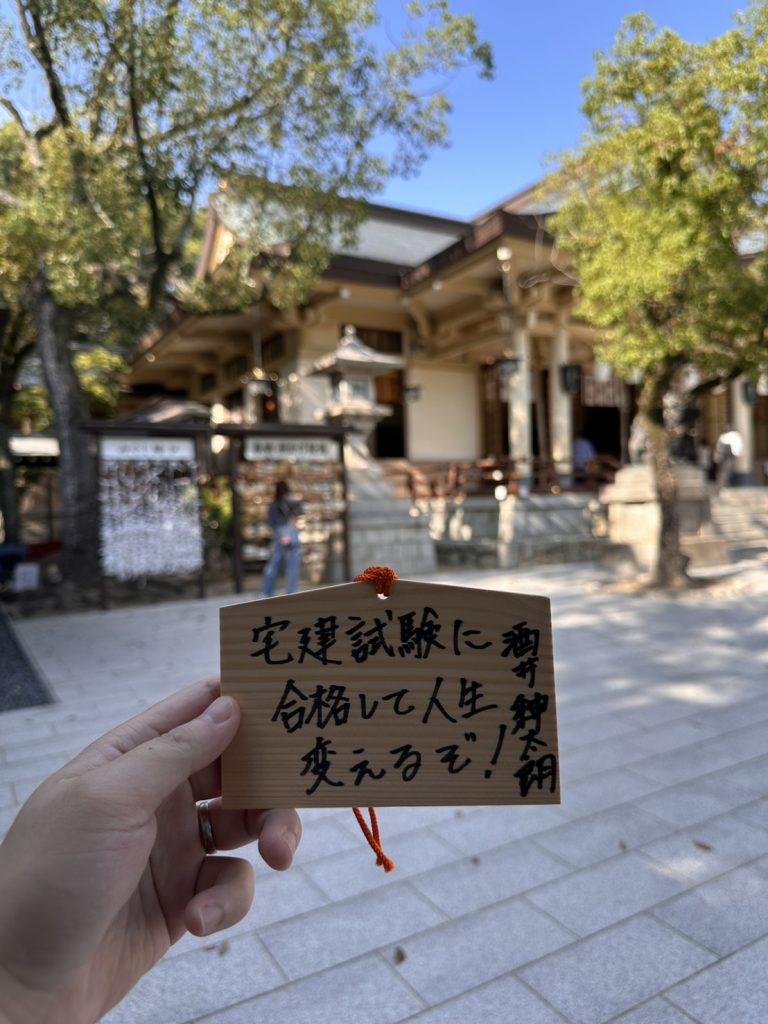 宅建試験に
合格して人生
変えるぞ!
酒井紳太朗